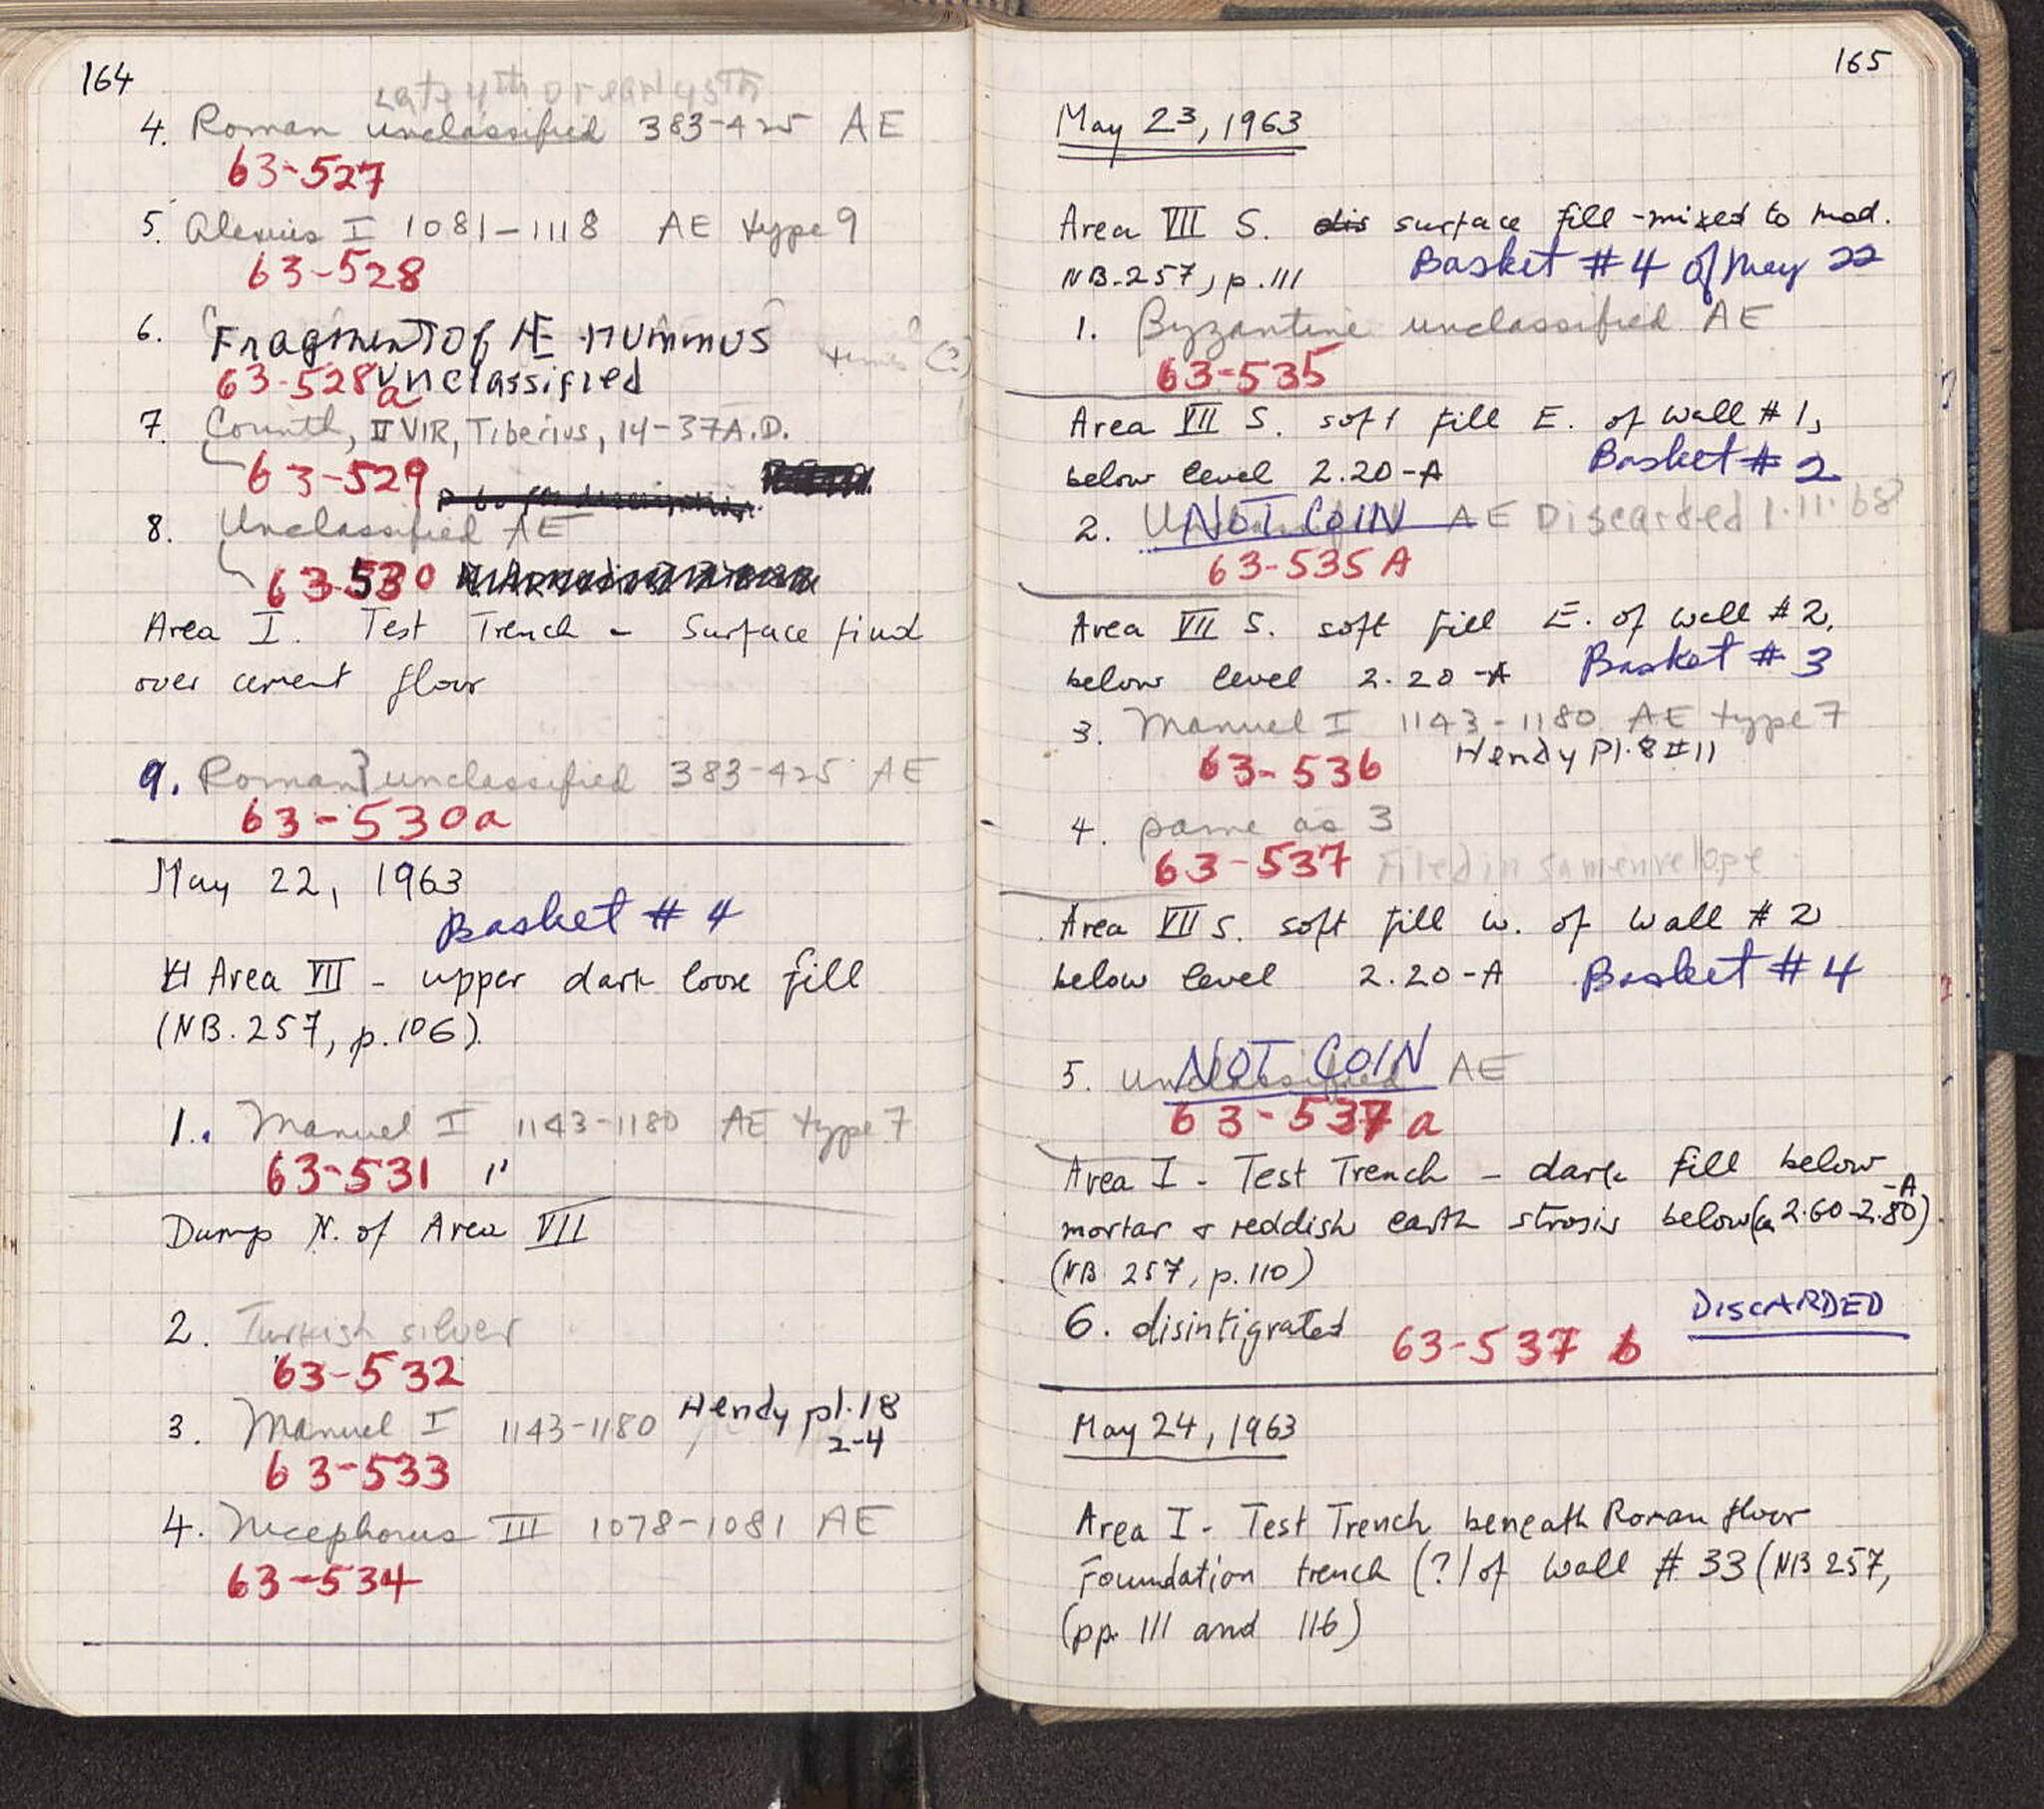 164
Late 4th or early 5th
4. Roman unclassified 383-425 AE
63-527
5. Alexius I 1081-1118 AE type 9
63-528
6. Fragment of AE nummus
63-528a unclassified
7. Corinth, II VIR, Tiberius, 14-37 A.D.
63-529
8. Unclassified AE
63-530
Area I. Test Trench - Surface find
over cement floor
9. Roman? unclassified 383-425 AE
63-530a
May 22, 1963
Basket # 4
Area VII - upper dark loose fill
(NB. 257, p. 106).
1. Manuel I 1143-1180 AE type 7
63-531
Dump N. of Area VII
2. Turkish silver
63-532
3. Manuel I 1143-1180 Hendy pl. 18
2-4
63-533
4. Nicephorus III 1078-1081 AE
63-534
165
May 23, 1963
Area VII S. dis surface fill - mixed to mod.
NB. 257, p. 111 Basket # 4 of May 22
1. Byzantine unclassified AE
63-535
Area VII S. soft fill E. of wall # 1,
below level 2.20-A Basket # 2
2. NOT COIN AE Discarded 1.11.68
63-535 A
Area VII S. soft fill E. of wall # 2,
below level 2.20-A Basket # 3
3. Manuel I 1143-1180 AE type 7
63-536 Hendy Pl. 8 #11
4. same as 3
63-537 Filed in sam envelope
Area VII S. soft fill W. of Wall # 2
below level 2.20-A Basket # 4
5. unclassified NOT COIN AE
63-537 a
Area I - Test Trench - dark fill below
mortar & reddish earth strosis below (ca 2.60-2.80) -A
(NB 257, p. 110)
6. disintigrated 63-537 b DISCARDED
May 24, 1963
Area I - Test Trench beneath Roman floor
Foundation trench (?) of Wall # 33 (NB 257,
(pp. 111 and 116)